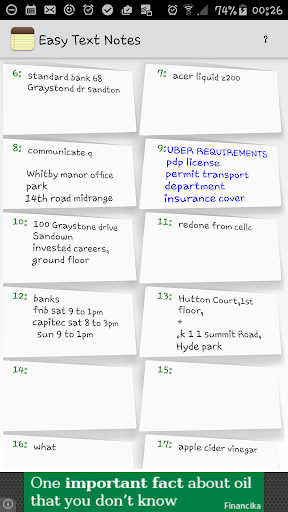 74% 00:26
Easy Text Notes ?
6: standard bank 68
Graystond dr sandton
7: acer liquid z200
8: communicate q
Whitby manor office
park
14th road midrange
9: UBER REQUIREMENTS
pdp license
permit transport
department
insurance cover
10: 100 Graystone drive
Sandown
invested careers,
ground floor
11: redone from cellc
12: banks
fnb sat 9 to 1pm
capitec sat 8 to 3pm
sun 9 to 1pm
13: Hutton Court,1st
floor,
+
.k 1 1 summit Road,
Hyde park
14:
15:
16: what
17: apple cider vinegar
One important fact about oil
that you don't know
Financika